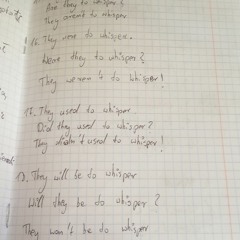 Are they to whisper?
They aren't to whisper
16. They were to whisper.
Were they to whisper?
They weren't do whisper!
17. They used to whisper
Did they used to whisper?
They didn't used to whisper!
They will be do whisper
Will they be do whisper ?
They won't be do whisper